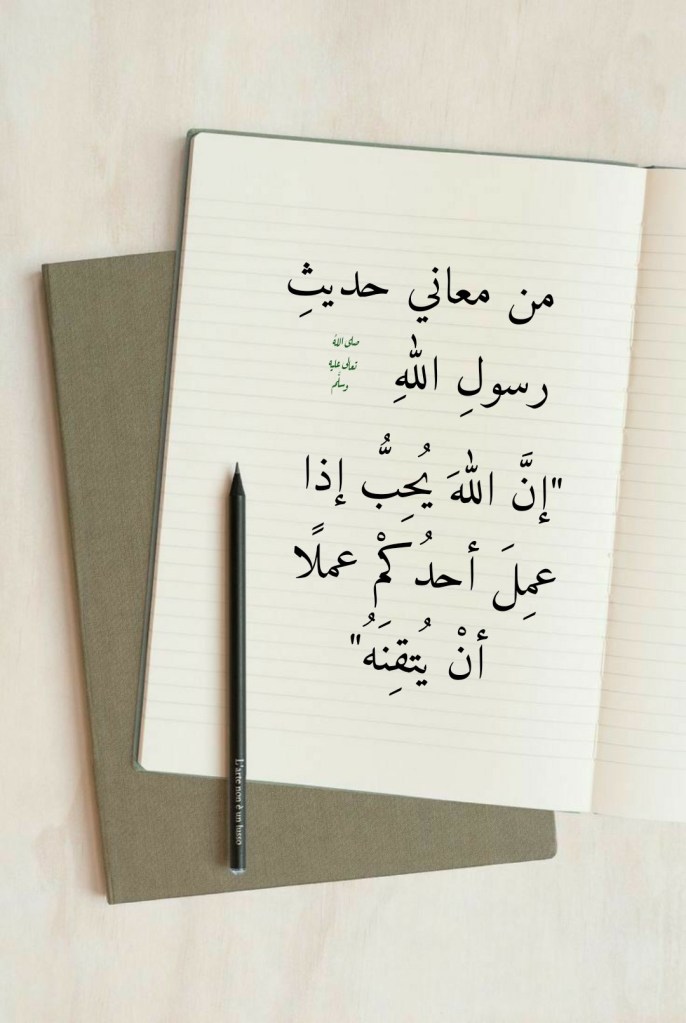 من معاني حديثِ
رسولِ اللهِ
صلى الله
تعالى عليه
وسلم
"إنَّ اللهَ يُحِبُّ إذا
عمِلَ أحدُكمْ عملًا
أنْ يُتقِنَهُ"
L'arte non è un lusso